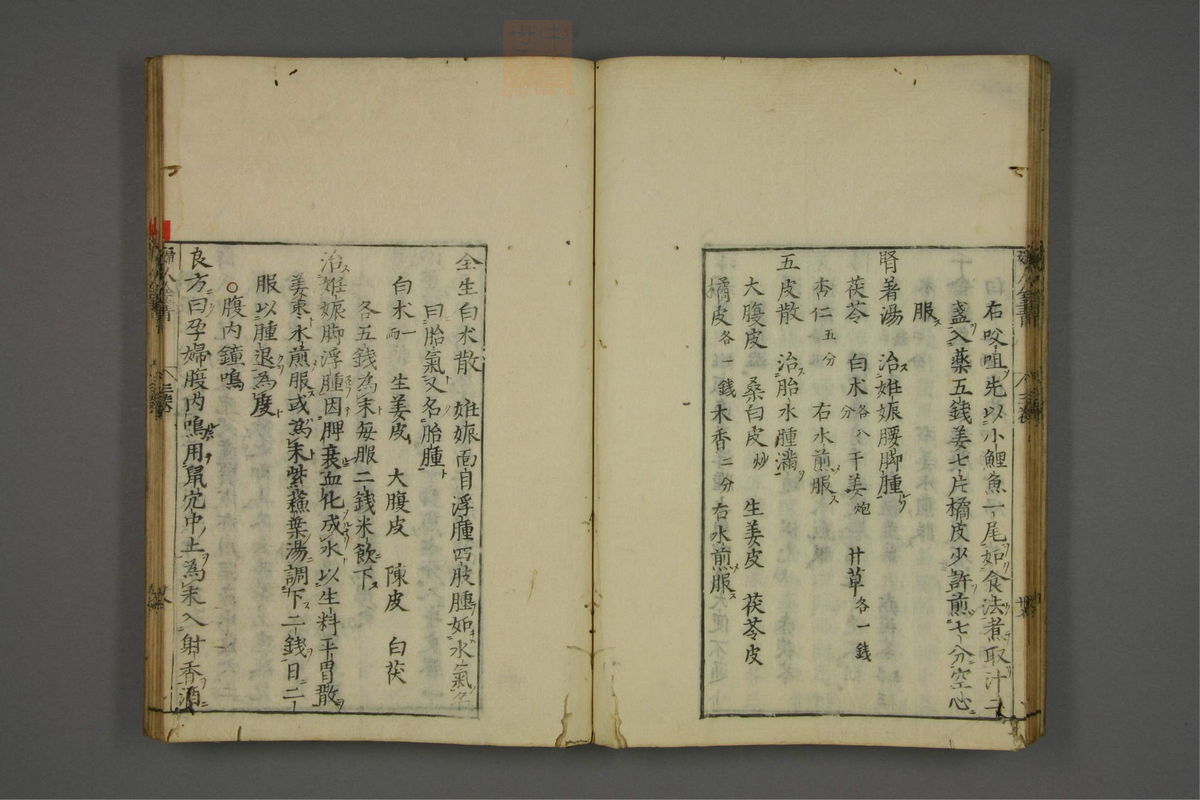 右㕮咀先以小鯉魚一尾如食法煮取汁二
盞入薬五銭姜七片橘皮少許煎七分空心
服
腎著湯 治姙娠腰脚腫
茯苓 白朮各八分 干姜炮 甘草各一銭
杏仁二五分 右水煎服
五皮散 治胎水腫満
大腹皮 桑白皮炒 生姜皮 茯苓皮
橘皮各一銭 木香二分 右水煎服
全生白朮散 姙娠面自浮腫四肢腫如水氣名
曰胎氣又名胎腫
白朮一両 生姜皮 大腹皮 陳皮 白茯
各五銭為末毎服二銭米飲下
治姙娠脚浮腫因脾衰血化成水以生料平胃散
姜棗水煎服或為末紫蘓葉湯調下二銭日二
服以腫退為度
○腹内鐘鳴
良方曰孕婦腹内鳴用鼠穴中土為末入射香酒